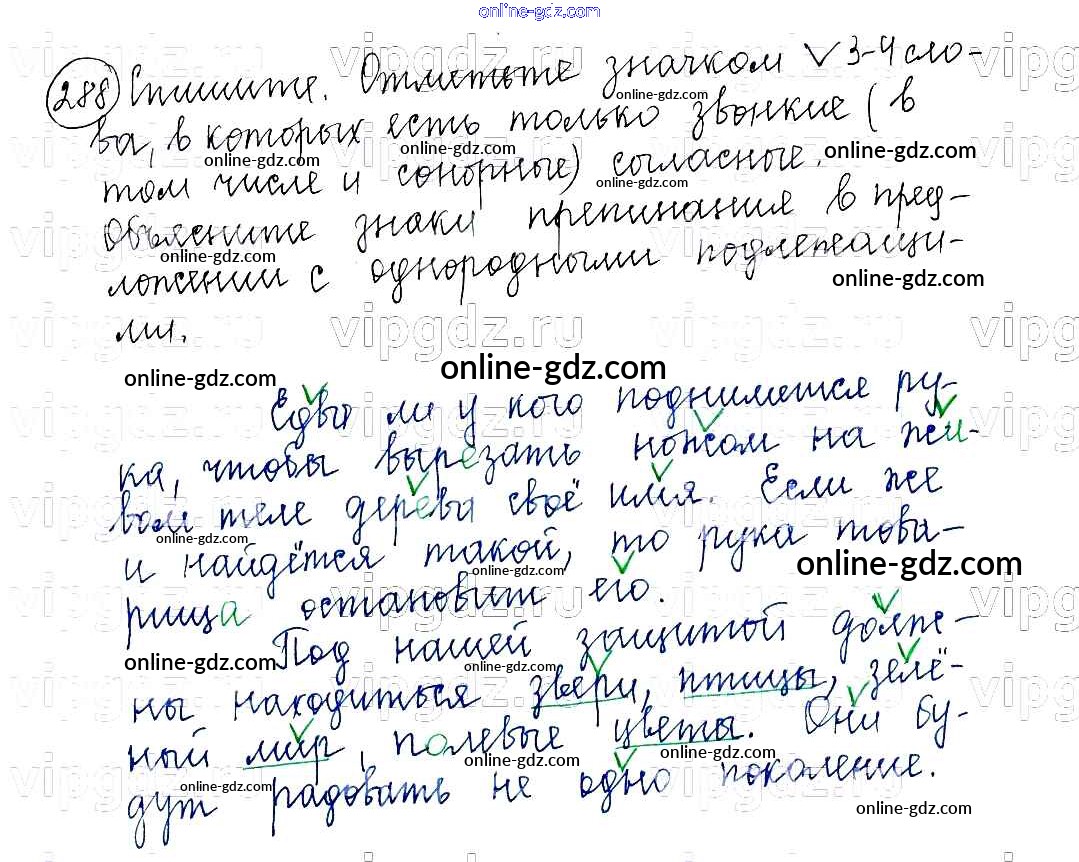 online-gdz.com
288 Спишите. Отметьте значком ∨ 3-4 сло-
ва, в которых есть только звонкие (в
том числе и сонорные) согласные.
Объясните знаки препинания в пред-
ложении с однородными подлежащи-
ми.
online-gdz.com
Едва ли у кого поднимется ру-
ка, чтобы вырезать ножом на жи-
вом теле дерева своё имя. Если же
и найдётся такой, то рука това-
рища остановит его.
Под нашей защитой долже-
ны находиться звери, птицы, зелё-
ный мир, полевые цветы. Они бу-
дут радовать не одно поколение.
vipgdz.ru